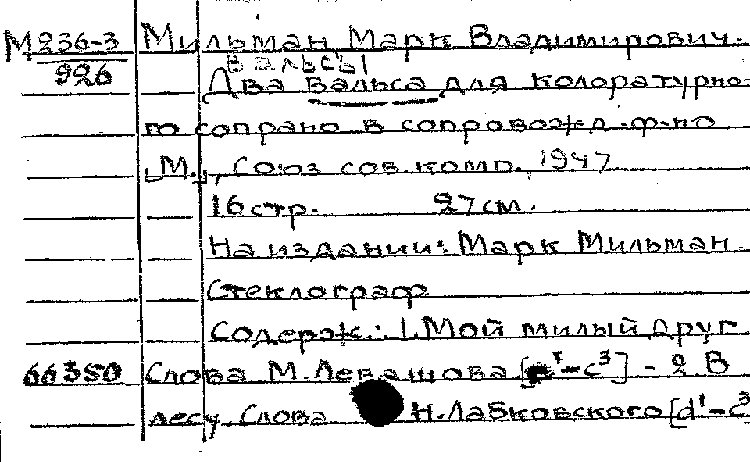 М236-3 Мильман, Марк Владимирович.
926 Вальсы
Два вальса для колоратурно-
го сопрано в сопровожд. ф-но
[М.], Союз сов. комп., 1947
16 стр. 27 см.
На издании: Марк Мильман.
Стеклограф
Содерж.: 1. Мой милый друг
66350 Слова М. Левашова [ ¹-c³] - 2. В
лесу. Слова Н. Лабковского [d¹-c³